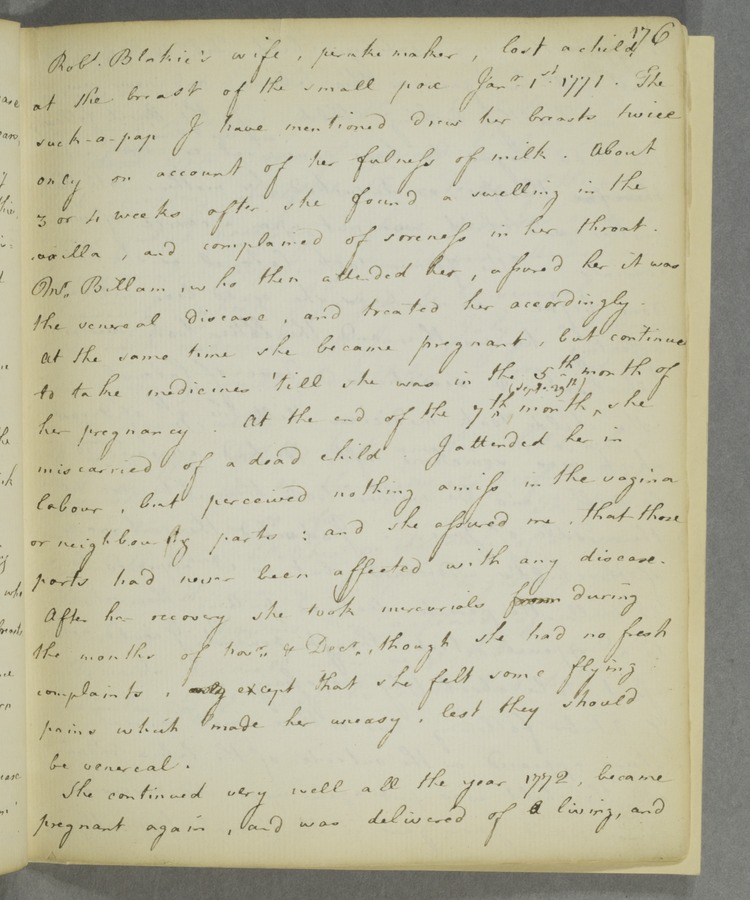 176
Robt. Blakie's wife, peruke maker, lost a child
at the breast of the small pox Janr. 1st. 1771. The
suck-a-pap I have mentioned drew her breasts twice
only on account of her fulness of milk. About
3 or 4 weeks after she found a swelling in the
axilla, and complained of soreness in her throat.
Mr. Billam, who then attended her, assured her it was
the venereal disease, and treated her accordingly.
At the same time she became pregnant, but continued
to take medicines 'till she was in the 5th month of
her pregnancy. At the end of the 7th month, (Sepr. 29th) she
miscarried of a dead child. I attended her in
labour, but perceived nothing amiss in the vagina
or neighbouring parts: and she assured me, that those
parts had never been affected with any disease.
After her recovery she took mercurials from during
the months of Novr. & Decr., though she had no fresh
complaints, only except that she felt some flying
pains which made her uneasy, lest they should
be venereal.
She continued very well all the year 1772, became
pregnant again, and was delivered of a living, and